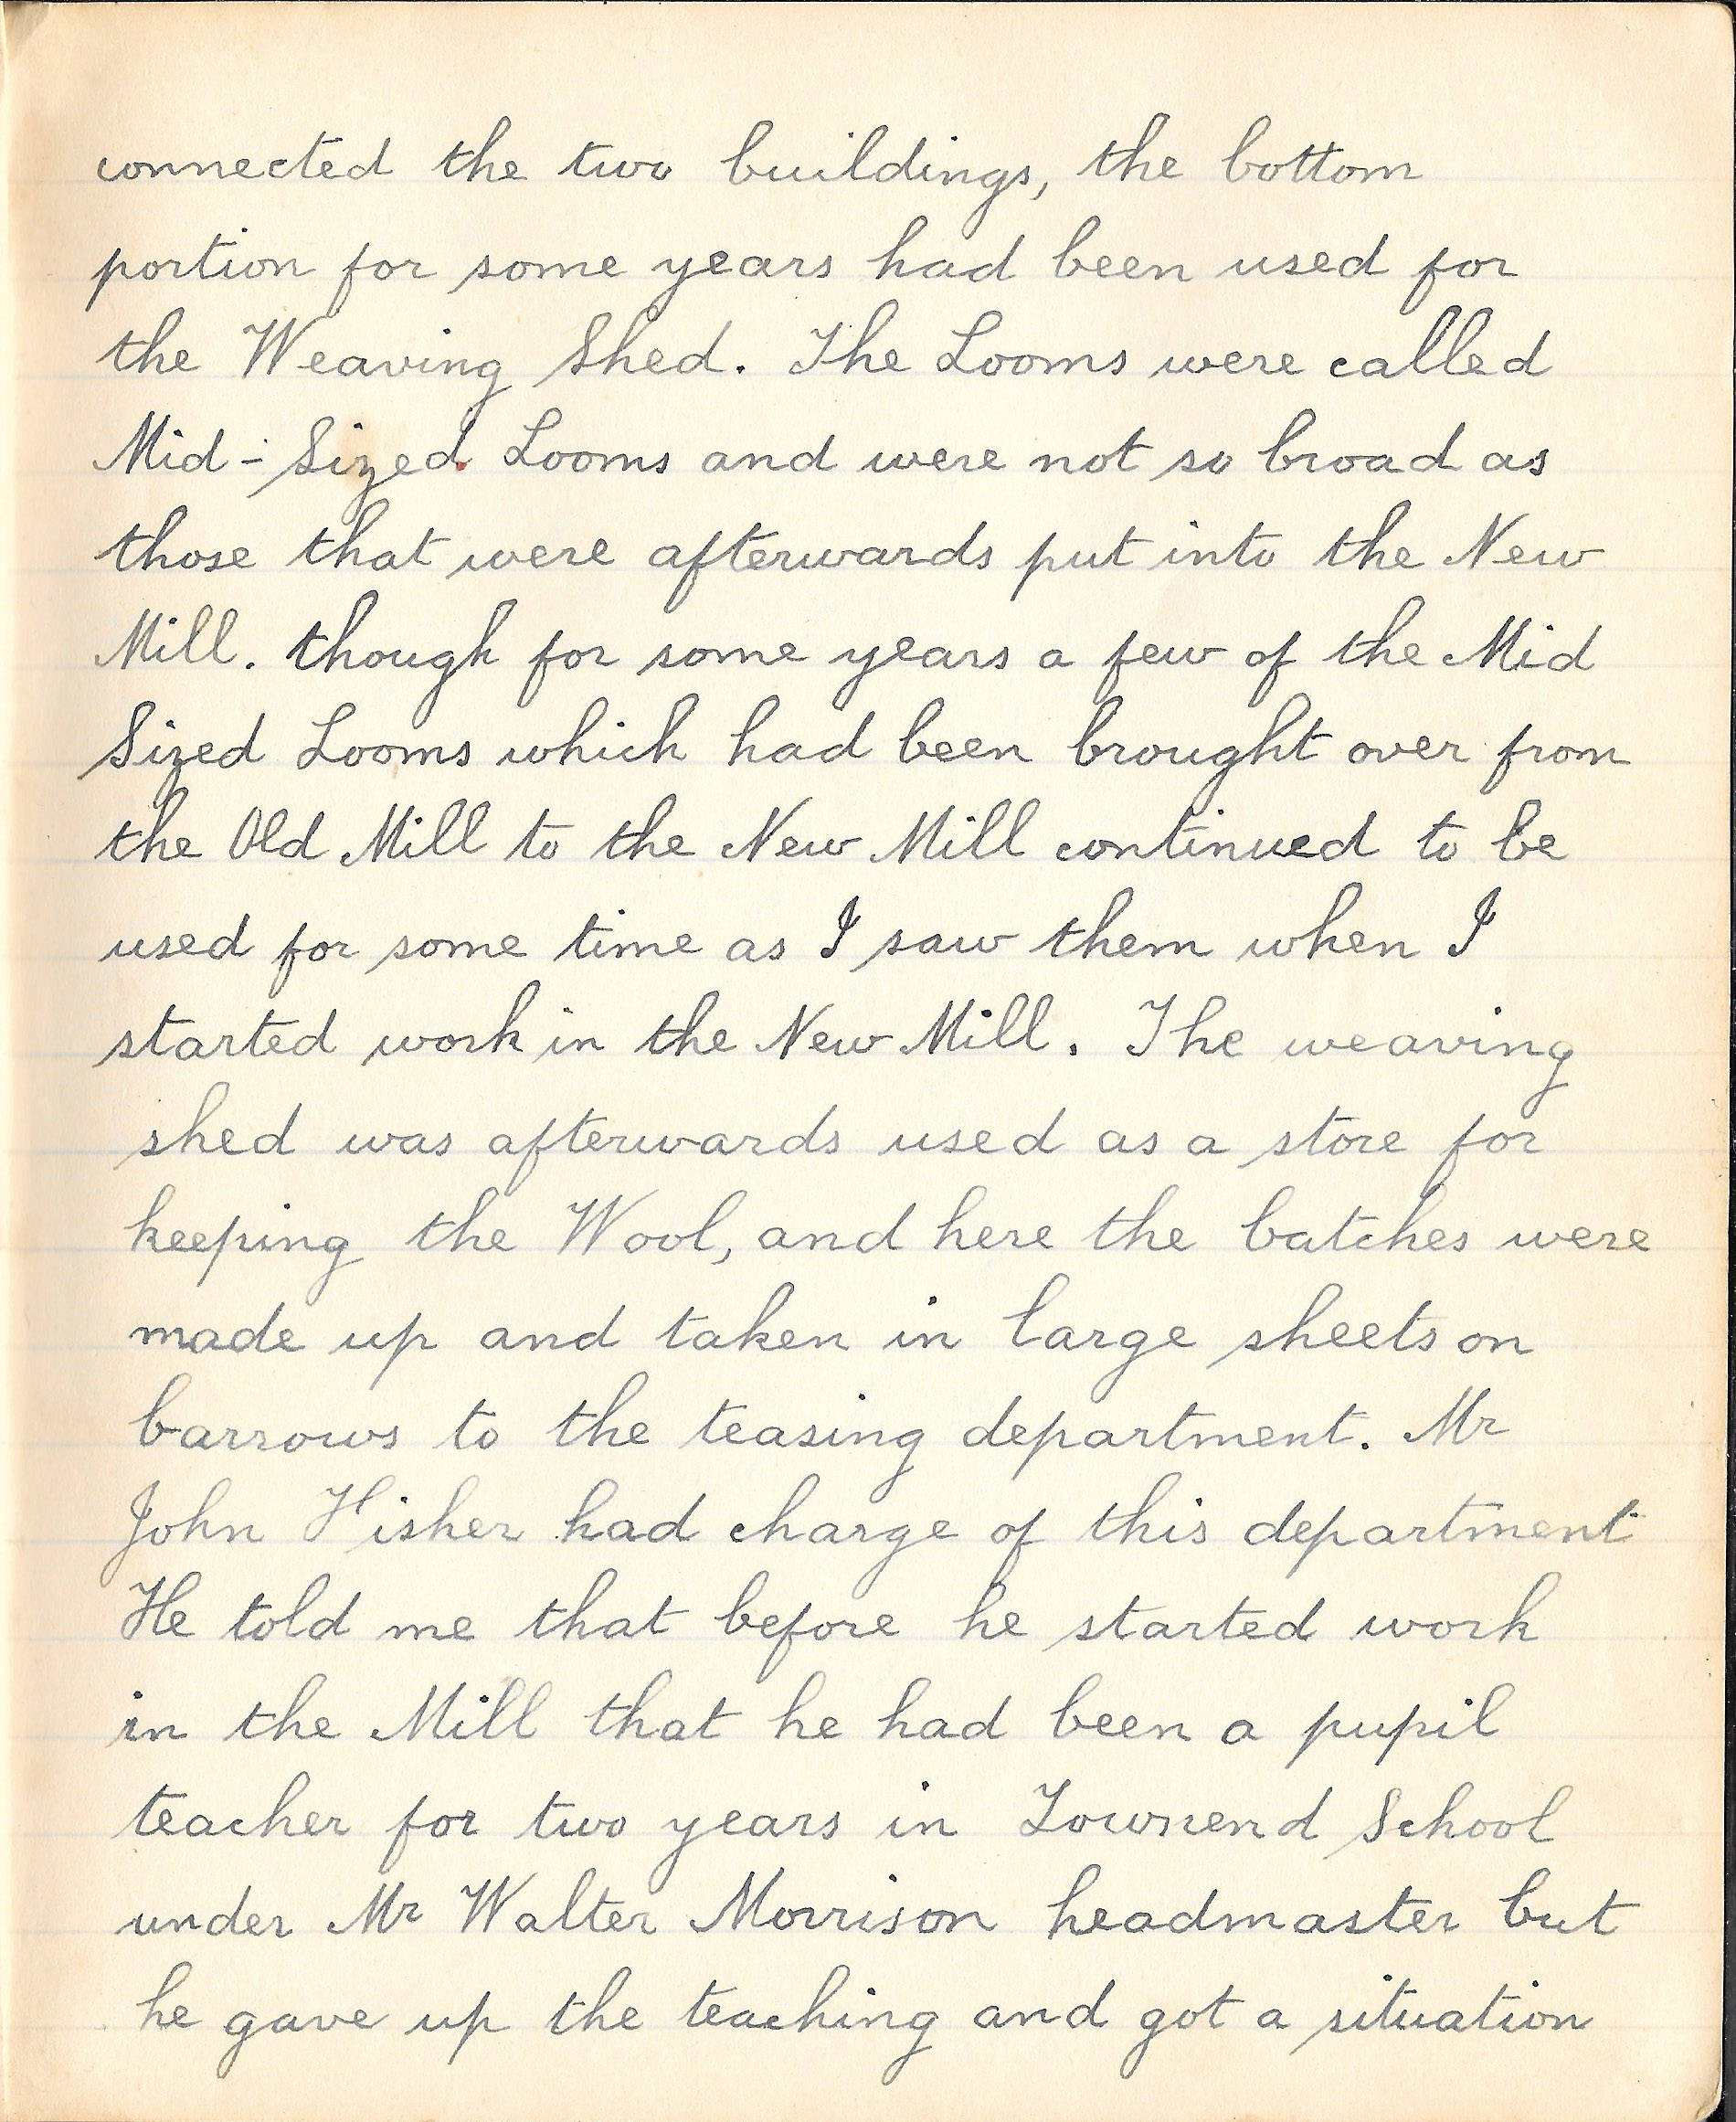 connected the two buildings, the bottom
portion for some years had been used for
the Weaving Shed. The Looms were called
Mid-Sized Looms and were not so broad as
those that were afterwards put into the New
Mill. though for some years a few of the Mid
Sized Looms which had been brought over from
the Old Mill to the New Mill continued to be
used for some time as I saw them when I
started work in the New Mill. The weaving
shed was afterwards used as a store for
keeping the Wool, and here the batches were
made up and taken in large sheets on
barrows to the teasing department. Mr
John Fisher had charge of this department
He told me that before he started work
in the Mill that he had been a pupil
teacher for two years in Townend School
under Mr Walter Morrison headmaster but
he gave up the teaching and got a situation